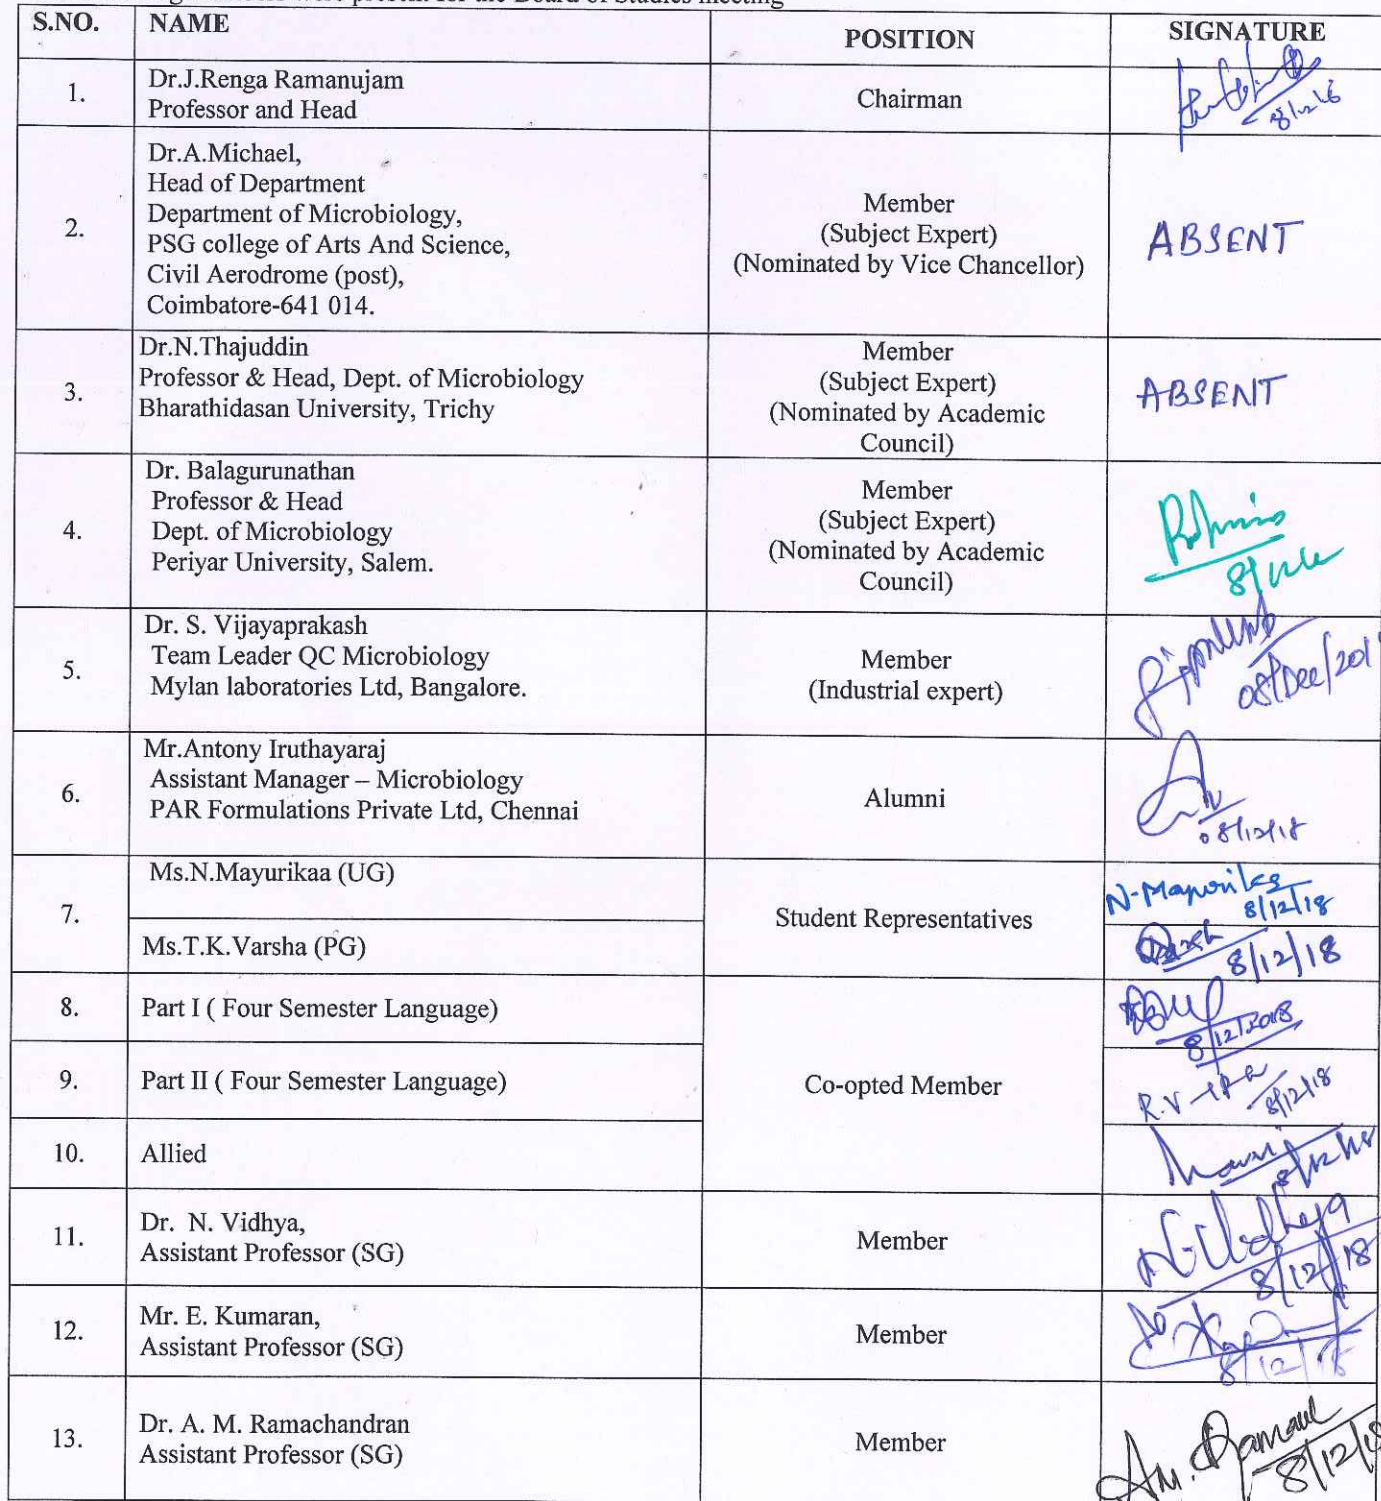 were present for the Board of Studies meeting
S.NO. NAME POSITION SIGNATURE
1.
Dr.J.Renga Ramanujam
Professor and Head
Chairman
2.
Dr.A.Michael,
Head of Department
Department of Microbiology,
PSG college of Arts And Science,
Civil Aerodrome (post),
Coimbatore-641 014.
Member
(Subject Expert)
(Nominated by Vice Chancellor)
ABSENT
3.
Dr.N.Thajuddin
Professor & Head, Dept. of Microbiology
Bharathidasan University, Trichy
Member
(Subject Expert)
(Nominated by Academic
Council)
ABSENT
4.
Dr. Balagurunathan
Professor & Head
Dept. of Microbiology
Periyar University, Salem.
Member
(Subject Expert)
(Nominated by Academic
Council)
5.
Dr. S. Vijayaprakash
Team Leader QC Microbiology
Mylan laboratories Ltd, Bangalore.
Member
(Industrial expert)
08/Dec/201
6.
Mr.Antony Iruthayaraj
Assistant Manager – Microbiology
PAR Formulations Private Ltd, Chennai
Alumni
08/12/18
7.
Ms.N.Mayurikaa (UG)
Student Representatives
8/12/18
Ms.T.K.Varsha (PG)
8/12/18
8.
Part I ( Four Semester Language)
8/12/2018
9.
Part II ( Four Semester Language)
Co-opted Member
8/12/18
10.
Allied
8/12/18
11.
Dr. N. Vidhya,
Assistant Professor (SG)
Member
8/12/18
12.
Mr. E. Kumaran,
Assistant Professor (SG)
Member
8/12/18
13.
Dr. A. M. Ramachandran
Assistant Professor (SG)
Member
8/12/18